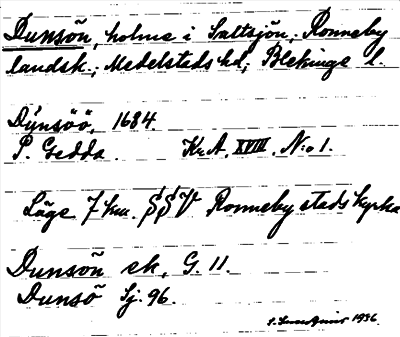 Dunsön, holme i Saltsjön, Ronneby
landsk., Medelstads hd, Blekinge l.
Dÿnsöö, 1684.
P. Gedda. Kr. A. XVIII. N:o 1.
Läge 7 km. SSV Ronneby stads kyrka
Dunsön ek, G. 11.
Dunsö Sj. 96.
1936.